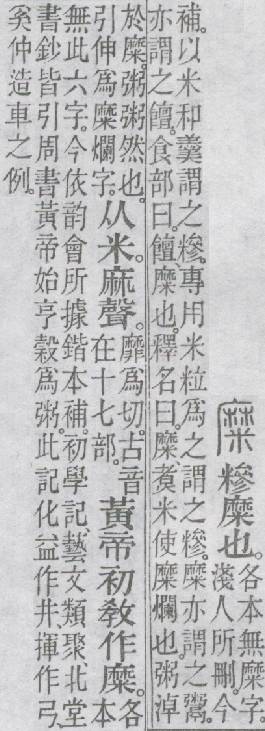 糜糝糜也。各本無糜字。淺人所刪。今
補。以米和羹謂之糝。專用米粒爲之謂之糝。糜亦謂之鬻。
亦謂之饘。食部曰。饘、糜也。釋名曰。糜、煑米使糜爛也。粥淖
於糜。粥粥然也。引伸爲糜爛字。从米。麻聲。靡爲切。古音在十七部。黃帝初敎作糜。各本
無此六字。今依韵會所據鍇本補。初學記、藝文類聚、北堂
書鈔皆引周書黃帝始亨穀爲粥。此記化益作井、揮作弓、
奚仲造車之例。